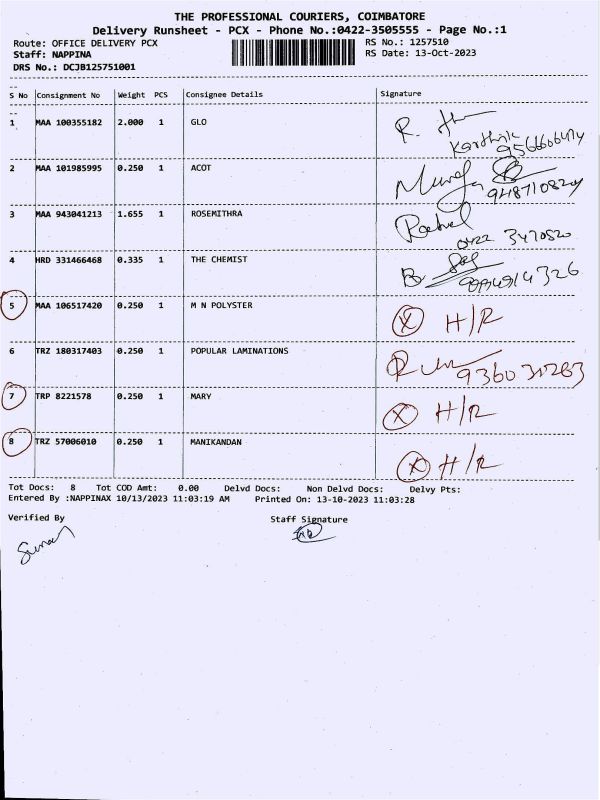 THE PROFESSIONAL COURIERS, COIMBATORE
Delivery Runsheet - PCX - Phone No.:0422-3505555 - Page No.:1
Route: OFFICE DELIVERY PCX RS No.: 1257510
Staff: NAPPINA RS Date: 13-Oct-2023
DRS No.: DCJB125751001
S No Consignment No Weight PCS Consignee Details Signature
1 MAA 100355182 2.000 1 GLO R.
Karthik
2 MAA 101985995 0.250 1 ACOT
3 MAA 943041213 1.655 1 ROSEMITHRA
0422 3470520
4 HRD 331466468 0.335 1 THE CHEMIST
5 MAA 106517420 0.250 1 M N POLYSTER X H/R
6 TRZ 180317403 0.250 1 POPULAR LAMINATIONS
7 TRP 8221578 0.250 1 MARY X H/R
8 TRZ 57006010 0.250 1 MANIKANDAN X H/R
Tot Docs: 8 Tot COD Amt: 0.00 Delvd Docs: Non Delvd Docs: Delvy Pts:
Entered By :NAPPINAX 10/13/2023 11:03:19 AM Printed On: 13-10-2023 11:03:28
Verified By Staff Signature